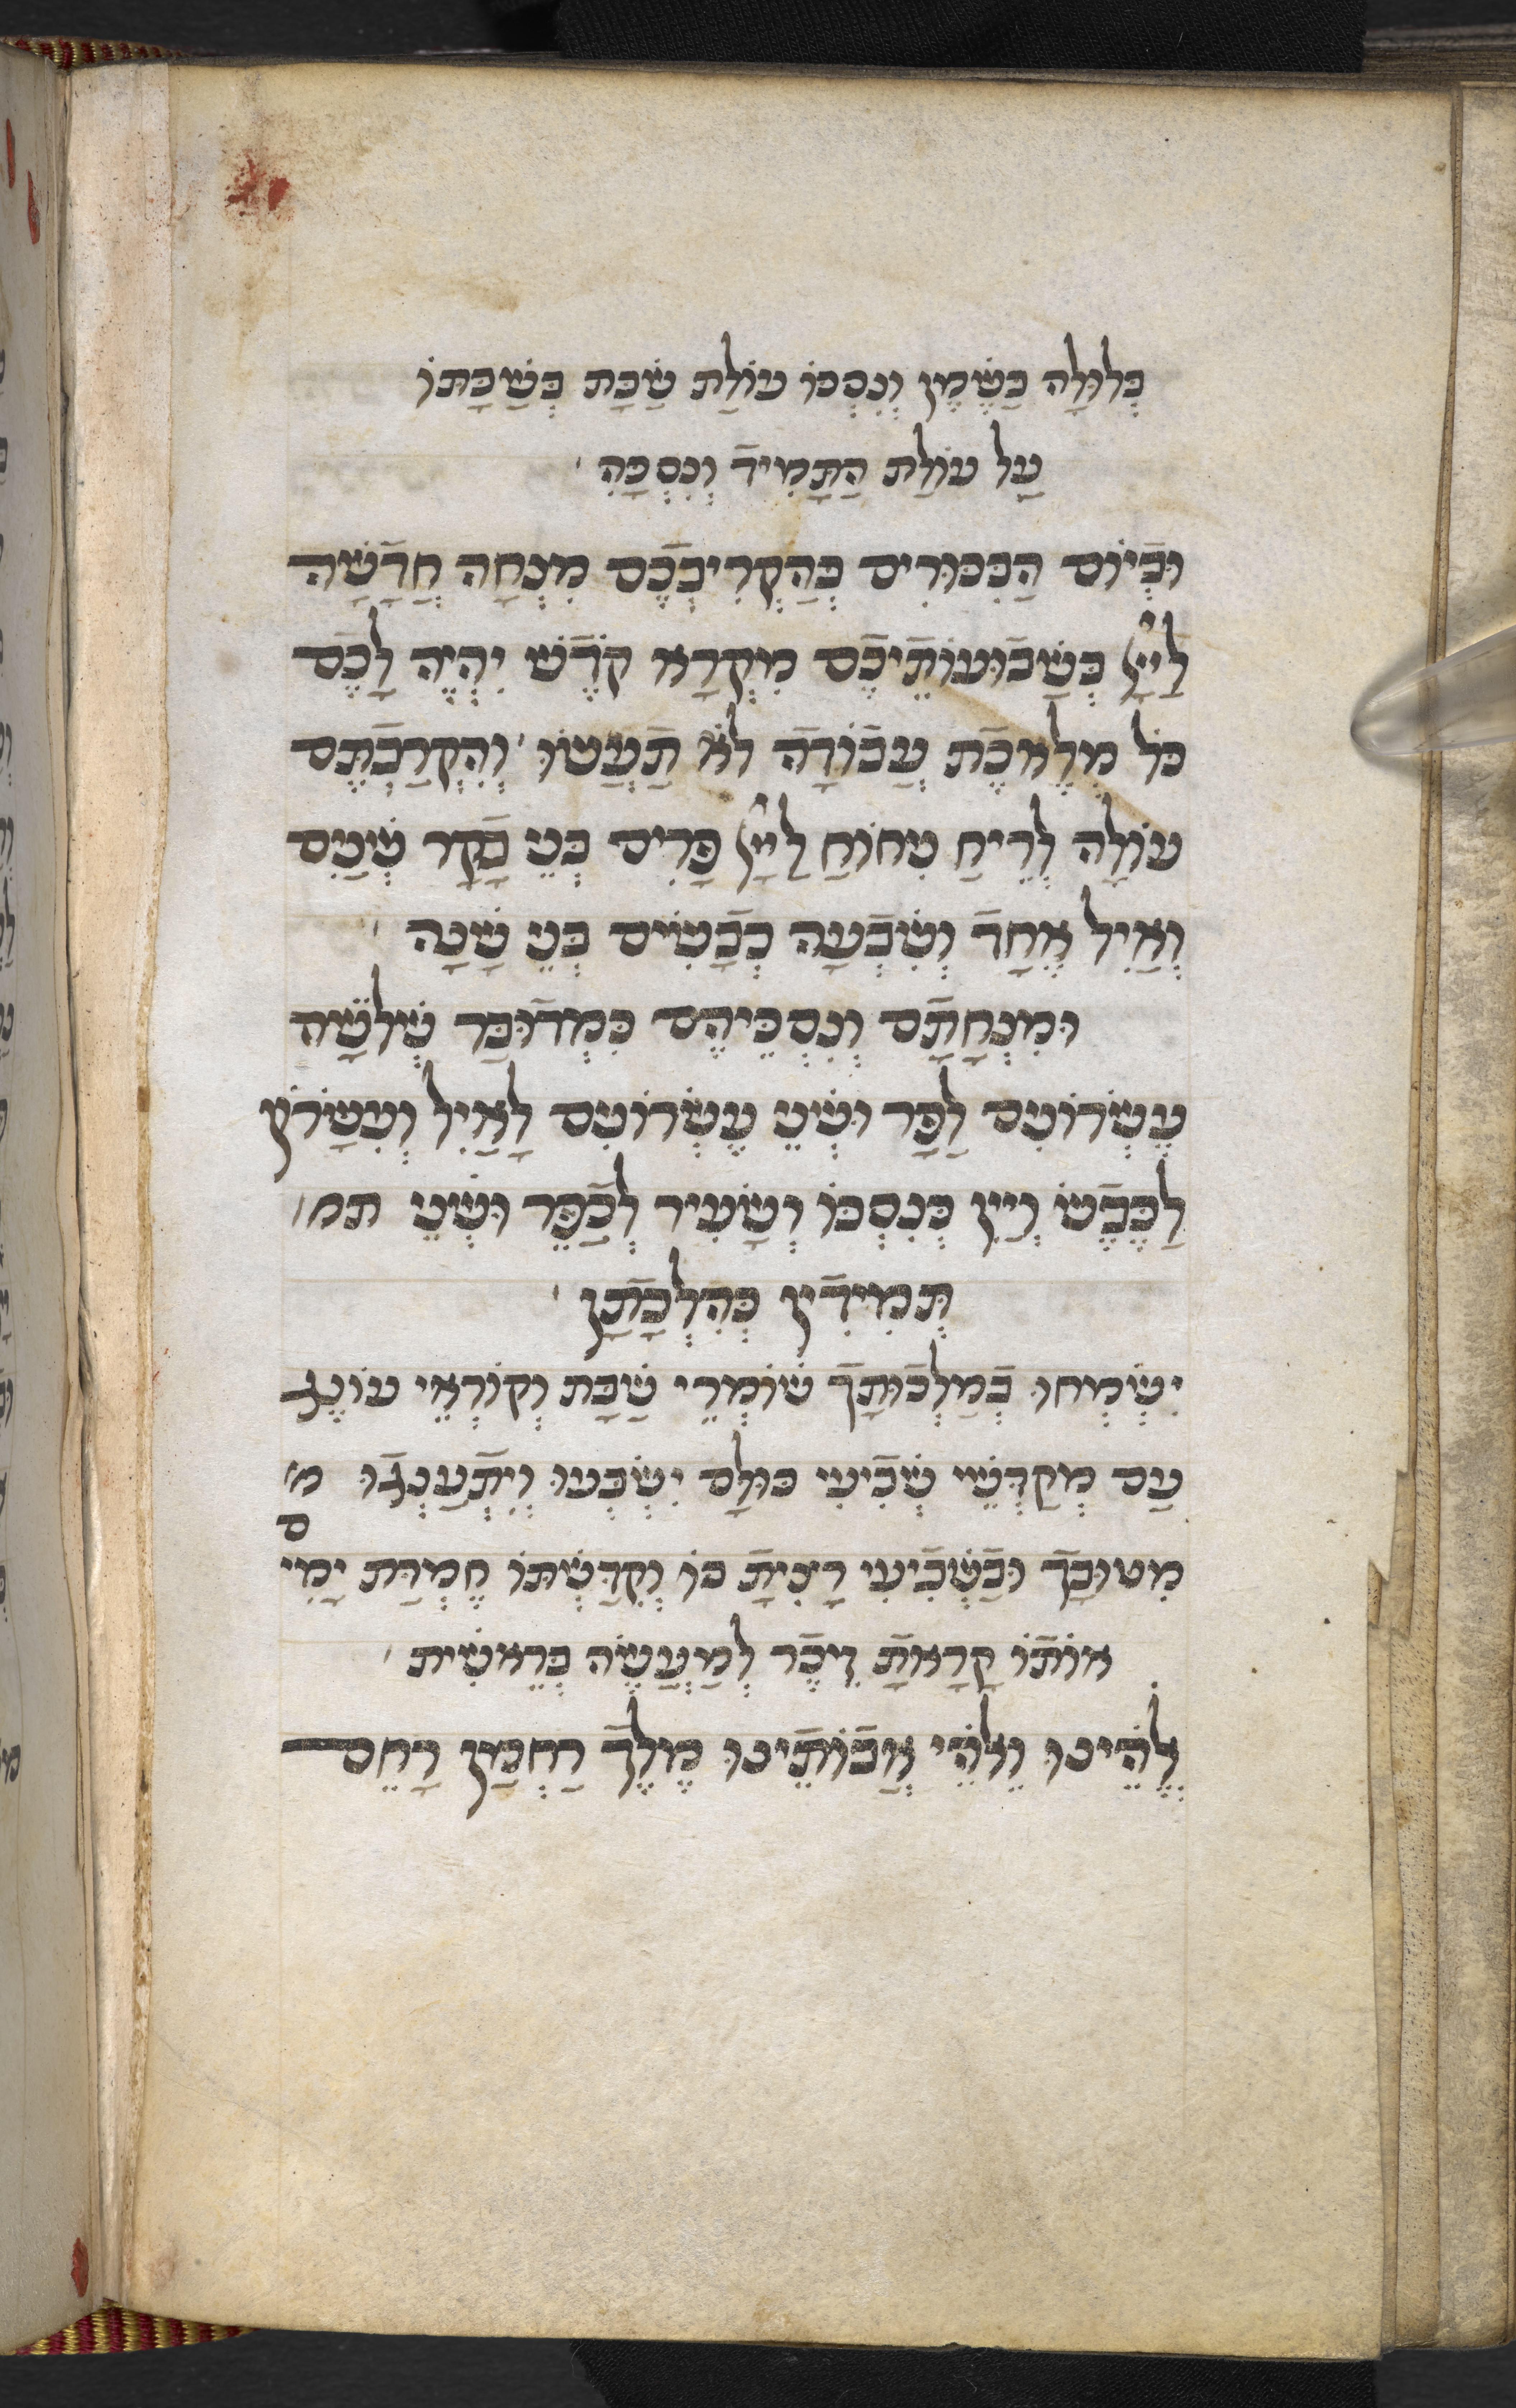 בְּלוּלָה בַשֶּׁמֶן וְנִסְכּוֹ עוֹלַת שַׁבָּת בְּשַׁבָּתּוֹ
עַל עוֹלַת הַתָּמִיד וְנִסְכָּהּ
וּבְיוֹם הַבִּכּוּרִים בְּהַקְרִיבְכֶם מִנְחָה חֲדָשָׁה
לַייָ בְּשָׁבוּעוֹתֵיכֶם מִקְרָא קֹדֶשׁ יִהְיֶה לָכֶם
כֹּל מְלֶאכֶת עֲבוֹדָה לֹא תַעֲשׂוּ וְהִקְרַבְתֶּם
עוֹלָה לְרֵיחַ נִחוֹחַ לַייָ פָּרִים בְּנֵי בָקָר שְׁנַיִם
וְאַיִל אֶחָד וְשִׁבְעָה כְבָשִׂים בְּנֵי שָׁנָה
וּמִנְחָתָם וְנִסְכֵּיהֶם כִּמְדוּבַּר שְׁלֹשָׁה
עֶשְׂרוֹנִים לַפָּר וּשְׁנֵי עֶשְׂרוֹנִים לָאַיִל וְעִשָּׂרוֹן
לַכֶּבֶשׂ וְיַיִן כְּנִסְכּוֹ וְשָׂעִיר לְכַפֵּר וּשְׁנֵי תמ
תְּמִידִין כְּהִלְכָתָן
יִשְׂמְחוּ בְמַלְכוּתָךְ שׁוֹמְרֵי שַׁבָּת וְקוֹרְאֵי עוֹנֶג
עַם מְקַדְּשֵׁי שְׁבִיעִי כּוּלָּם יִשְׂבְּעוּ וְיִתְעַנְּגוּ מ
מִטּוּבָךְ וּבַשְּׁבִיעִי רָצִיתָ בּוֹ וְקִדַּשְׁתּוֹ חֶמְדַּת יָמִים
אוֹתוֹ קָרָאתָ זֵכֶר לְמַעֲשֵׂה בְרֵאשִׁית
אֱלֹהֵינוּ וֵאלֹהֵי אֲבוֹתֵינוּ מֶלֶךְ רַחְמָן רַחֵם